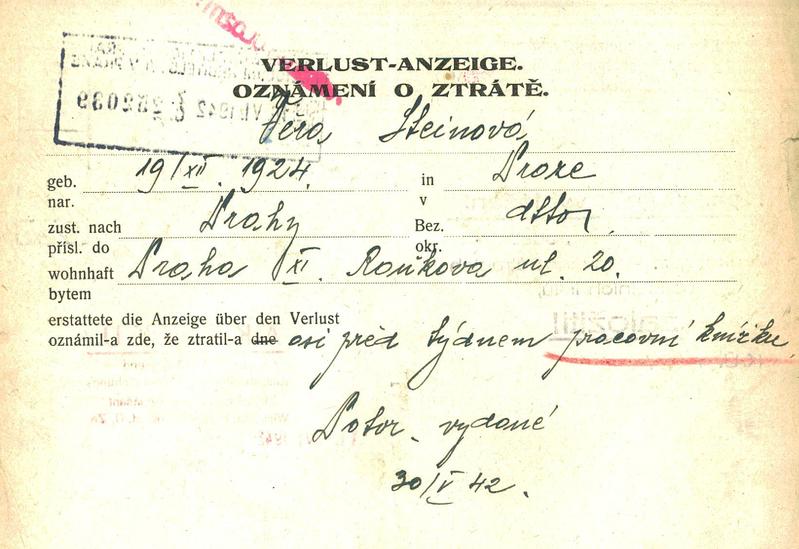 VERLUST-ANZEIGE.
OZNÁMENÍ O ZTRÁTĚ.
Věra Steinová
geb. 19/XII. 1924. in Praze
nar. v
zust. nach Prahy Bez. dtto
přísl. do okr.
wohnhaft Praha XI. ul. 20.
bytem
erstattete die Anzeige über den Verlust
oznámil-a zde, že ztratil-a dne asi před týdnem pracovní knížku
Potvr. vydané
30/V 42.